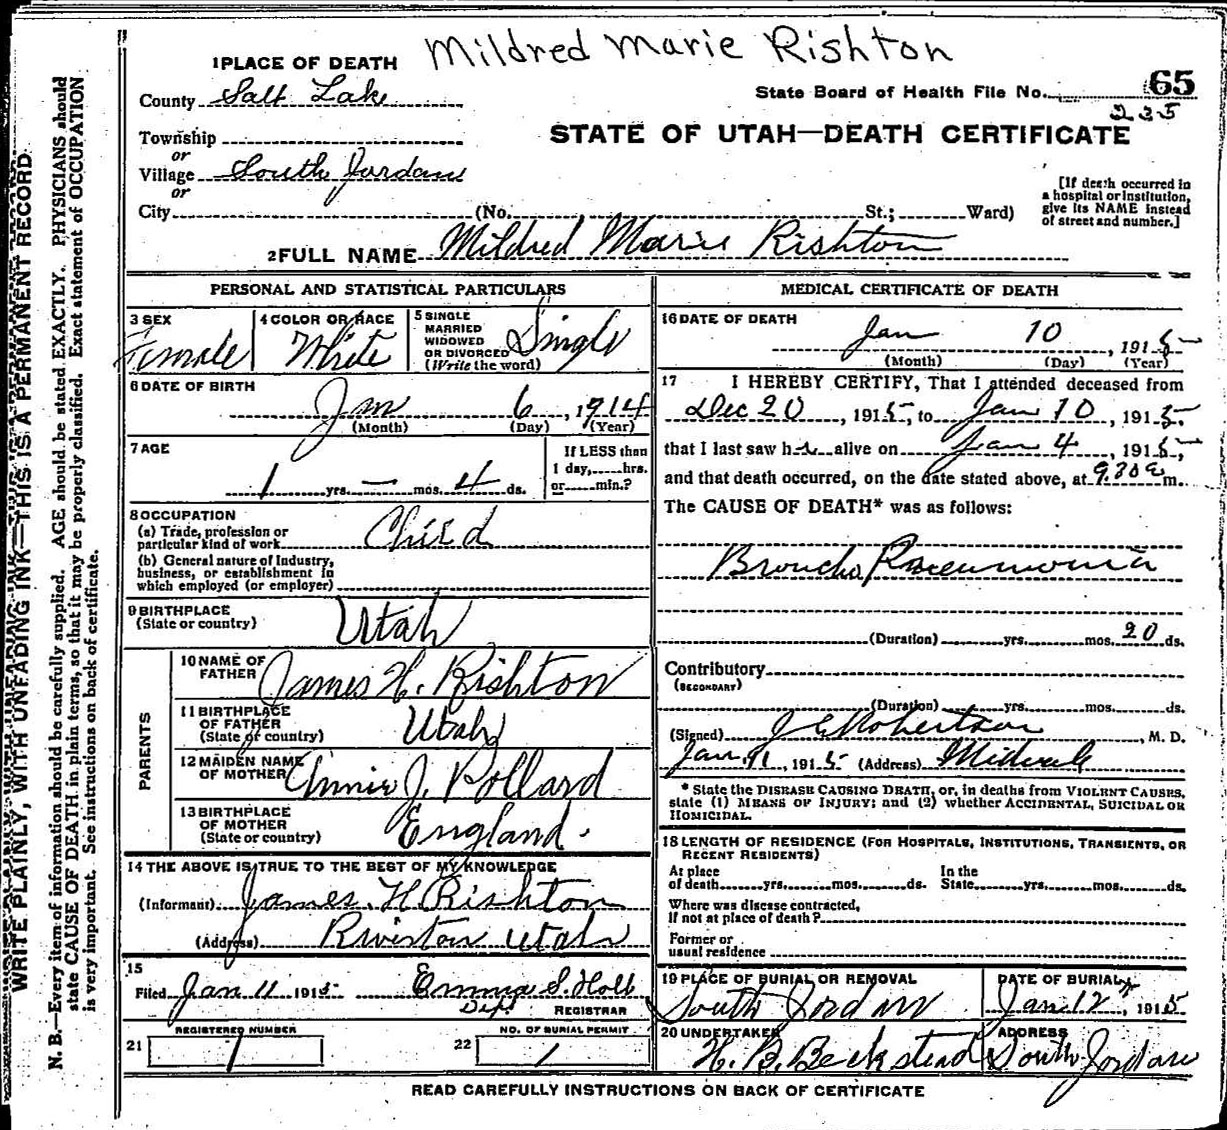 Mildred Marie Rishton
1 PLACE OF DEATH
County Salt Lake
State Board of Health File No. 65
235
Township
or
STATE OF UTAH—DEATH CERTIFICATE
Village South Jordan
or
City (No. St.; Ward)
[If death occurred in
a hospital or institution,
give its NAME instead
of street and number.]
2 FULL NAME Mildred Marie Rishton
PERSONAL AND STATISTICAL PARTICULARS
3 SEX
Female
4 COLOR OR RACE
White
5 SINGLE
MARRIED
WIDOWED
OR DIVORCED
(Write the word)
Single
6 DATE OF BIRTH
Jan 6, 1914
(Month) (Day) (Year)
7 AGE
1 yrs. — mos. 4 ds.
If LESS than
1 day, hrs.
or min.?
8 OCCUPATION
(a) Trade, profession or
particular kind of work Child
(b) General nature of Industry,
business, or establishment in
which employed (or employer)
9 BIRTHPLACE
(State or country) Utah
PARENTS
10 NAME OF
FATHER James H. Rishton
11 BIRTHPLACE
OF FATHER
(State or country) Utah
12 MAIDEN NAME
OF MOTHER Annie J. Pollard
13 BIRTHPLACE
OF MOTHER
(State or country) England.
14 THE ABOVE IS TRUE TO THE BEST OF MY KNOWLEDGE
(Informant) James H Rishton
(Address) Riverton Utah
15
Filed Jan 11 1915 Emma S. Holt
Dept REGISTRAR
REGISTERED NUMBER
21 1
NO. OF BURIAL PERMIT
22 1
MEDICAL CERTIFICATE OF DEATH
16 DATE OF DEATH
Jan 10, 1915
(Month) (Day) (Year)
17 I HEREBY CERTIFY, That I attended deceased from
Dec 20, 1915, to Jan 10, 1915,
that I last saw her alive on Jan 4, 1915,
and that death occurred, on the date stated above, at 930a m.
The CAUSE OF DEATH* was as follows:
Broncho Pneumonia
(Duration) yrs. mos. 20 ds.
Contributory
(SECONDARY)
(Duration) yrs. mos. ds.
(Signed) J E Robertson, M. D.
Jan 11, 1915 (Address) Midvale
* State the DISEASE CAUSING DEATH, or, in deaths from VIOLENT CAUSES,
state (1) MEANS OF INJURY; and (2) whether ACCIDENTAL, SUICIDAL OR
HOMICIDAL.
18 LENGTH OF RESIDENCE (FOR HOSPITALS, INSTITUTIONS, TRANSIENTS, OR
RECENT RESIDENTS)
At place
of death yrs. mos. ds.
In the
State yrs. mos. ds.
Where was disease contracted,
If not at place of death?
Former or
usual residence
19 PLACE OF BURIAL OR REMOVAL
South Jordan
DATE OF BURIAL
Jan 12, 1915
20 UNDERTAKER
H. B. Beckstead
ADDRESS
South Jordan
READ CAREFULLY INSTRUCTIONS ON BACK OF CERTIFICATE
WRITE PLAINLY, WITH UNFADING INK—THIS IS A PERMANENT RECORD
N. B.—Every item of information should be carefully supplied. AGE should be stated EXACTLY. PHYSICIANS should
state CAUSE OF DEATH in plain terms, so that it may be properly classified. Exact statement of OCCUPATION
is very important. See instructions on back of certificate.